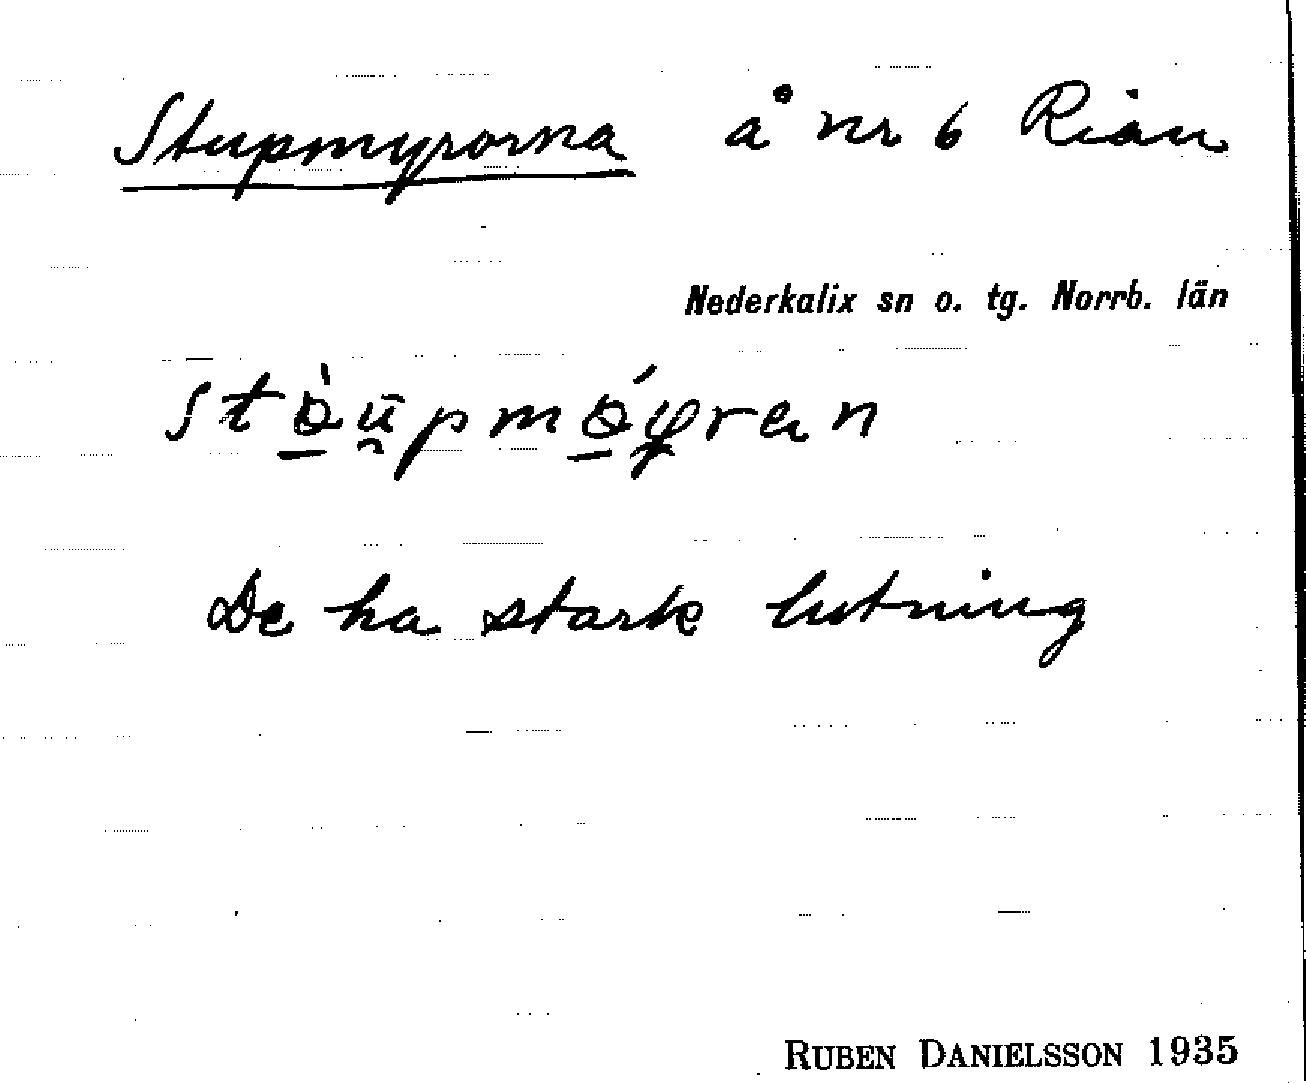 Stupmyrorna å nr 6 Riån
Nederkalix sn o. tg. Norrb. län
De ha stark lutning
RUBEN DANIELSSON 1935